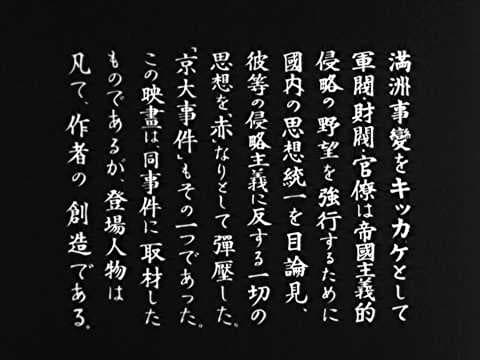 満洲事變をキッカケとして
軍閥財閥・官僚は帝國主義的
侵略の野望を強行するために
國内の思想統一を目論見、
彼等の侵略主義に反する一切の
思想を「赤」なりとして彈壓した。
「京大事件」もその一つであった。
この映畫は、同事件に取材した
ものであるが、登場人物は
凡て、作者の創造である。